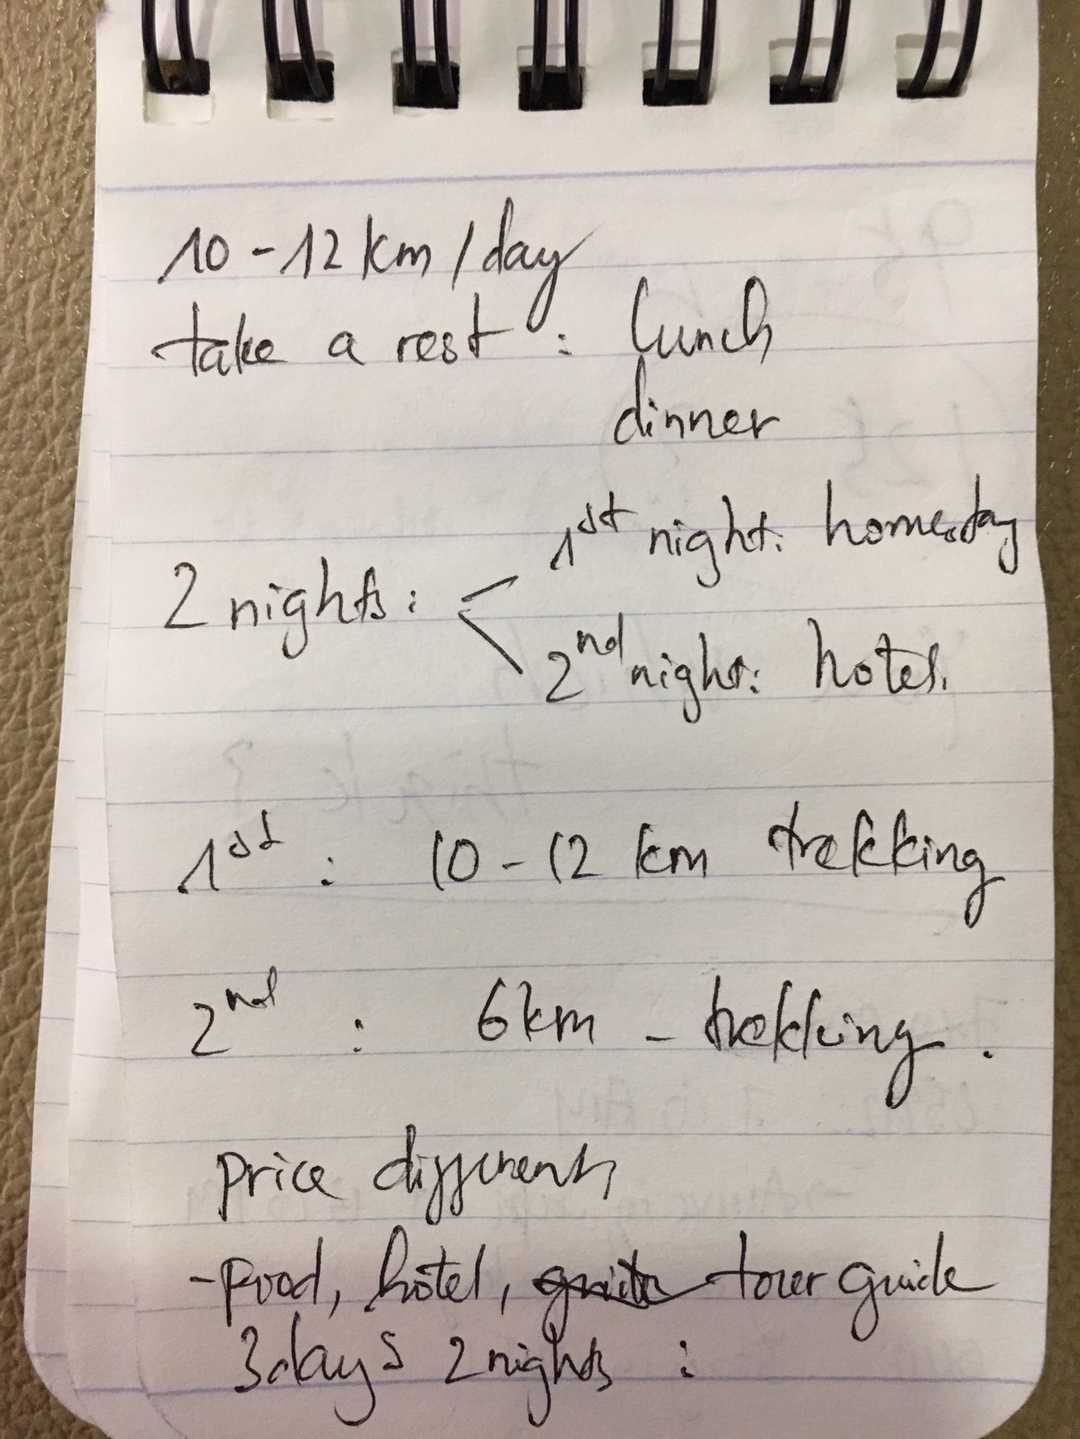 10-12km/day
take a rest : lunch
dinner
1st night: homestay
2 nights : <
2nd night: hotel.
1st : 10-12 km trekking
2nd : 6km - trekking.
price different
-food, hotel, tour guide
3days 2nights :